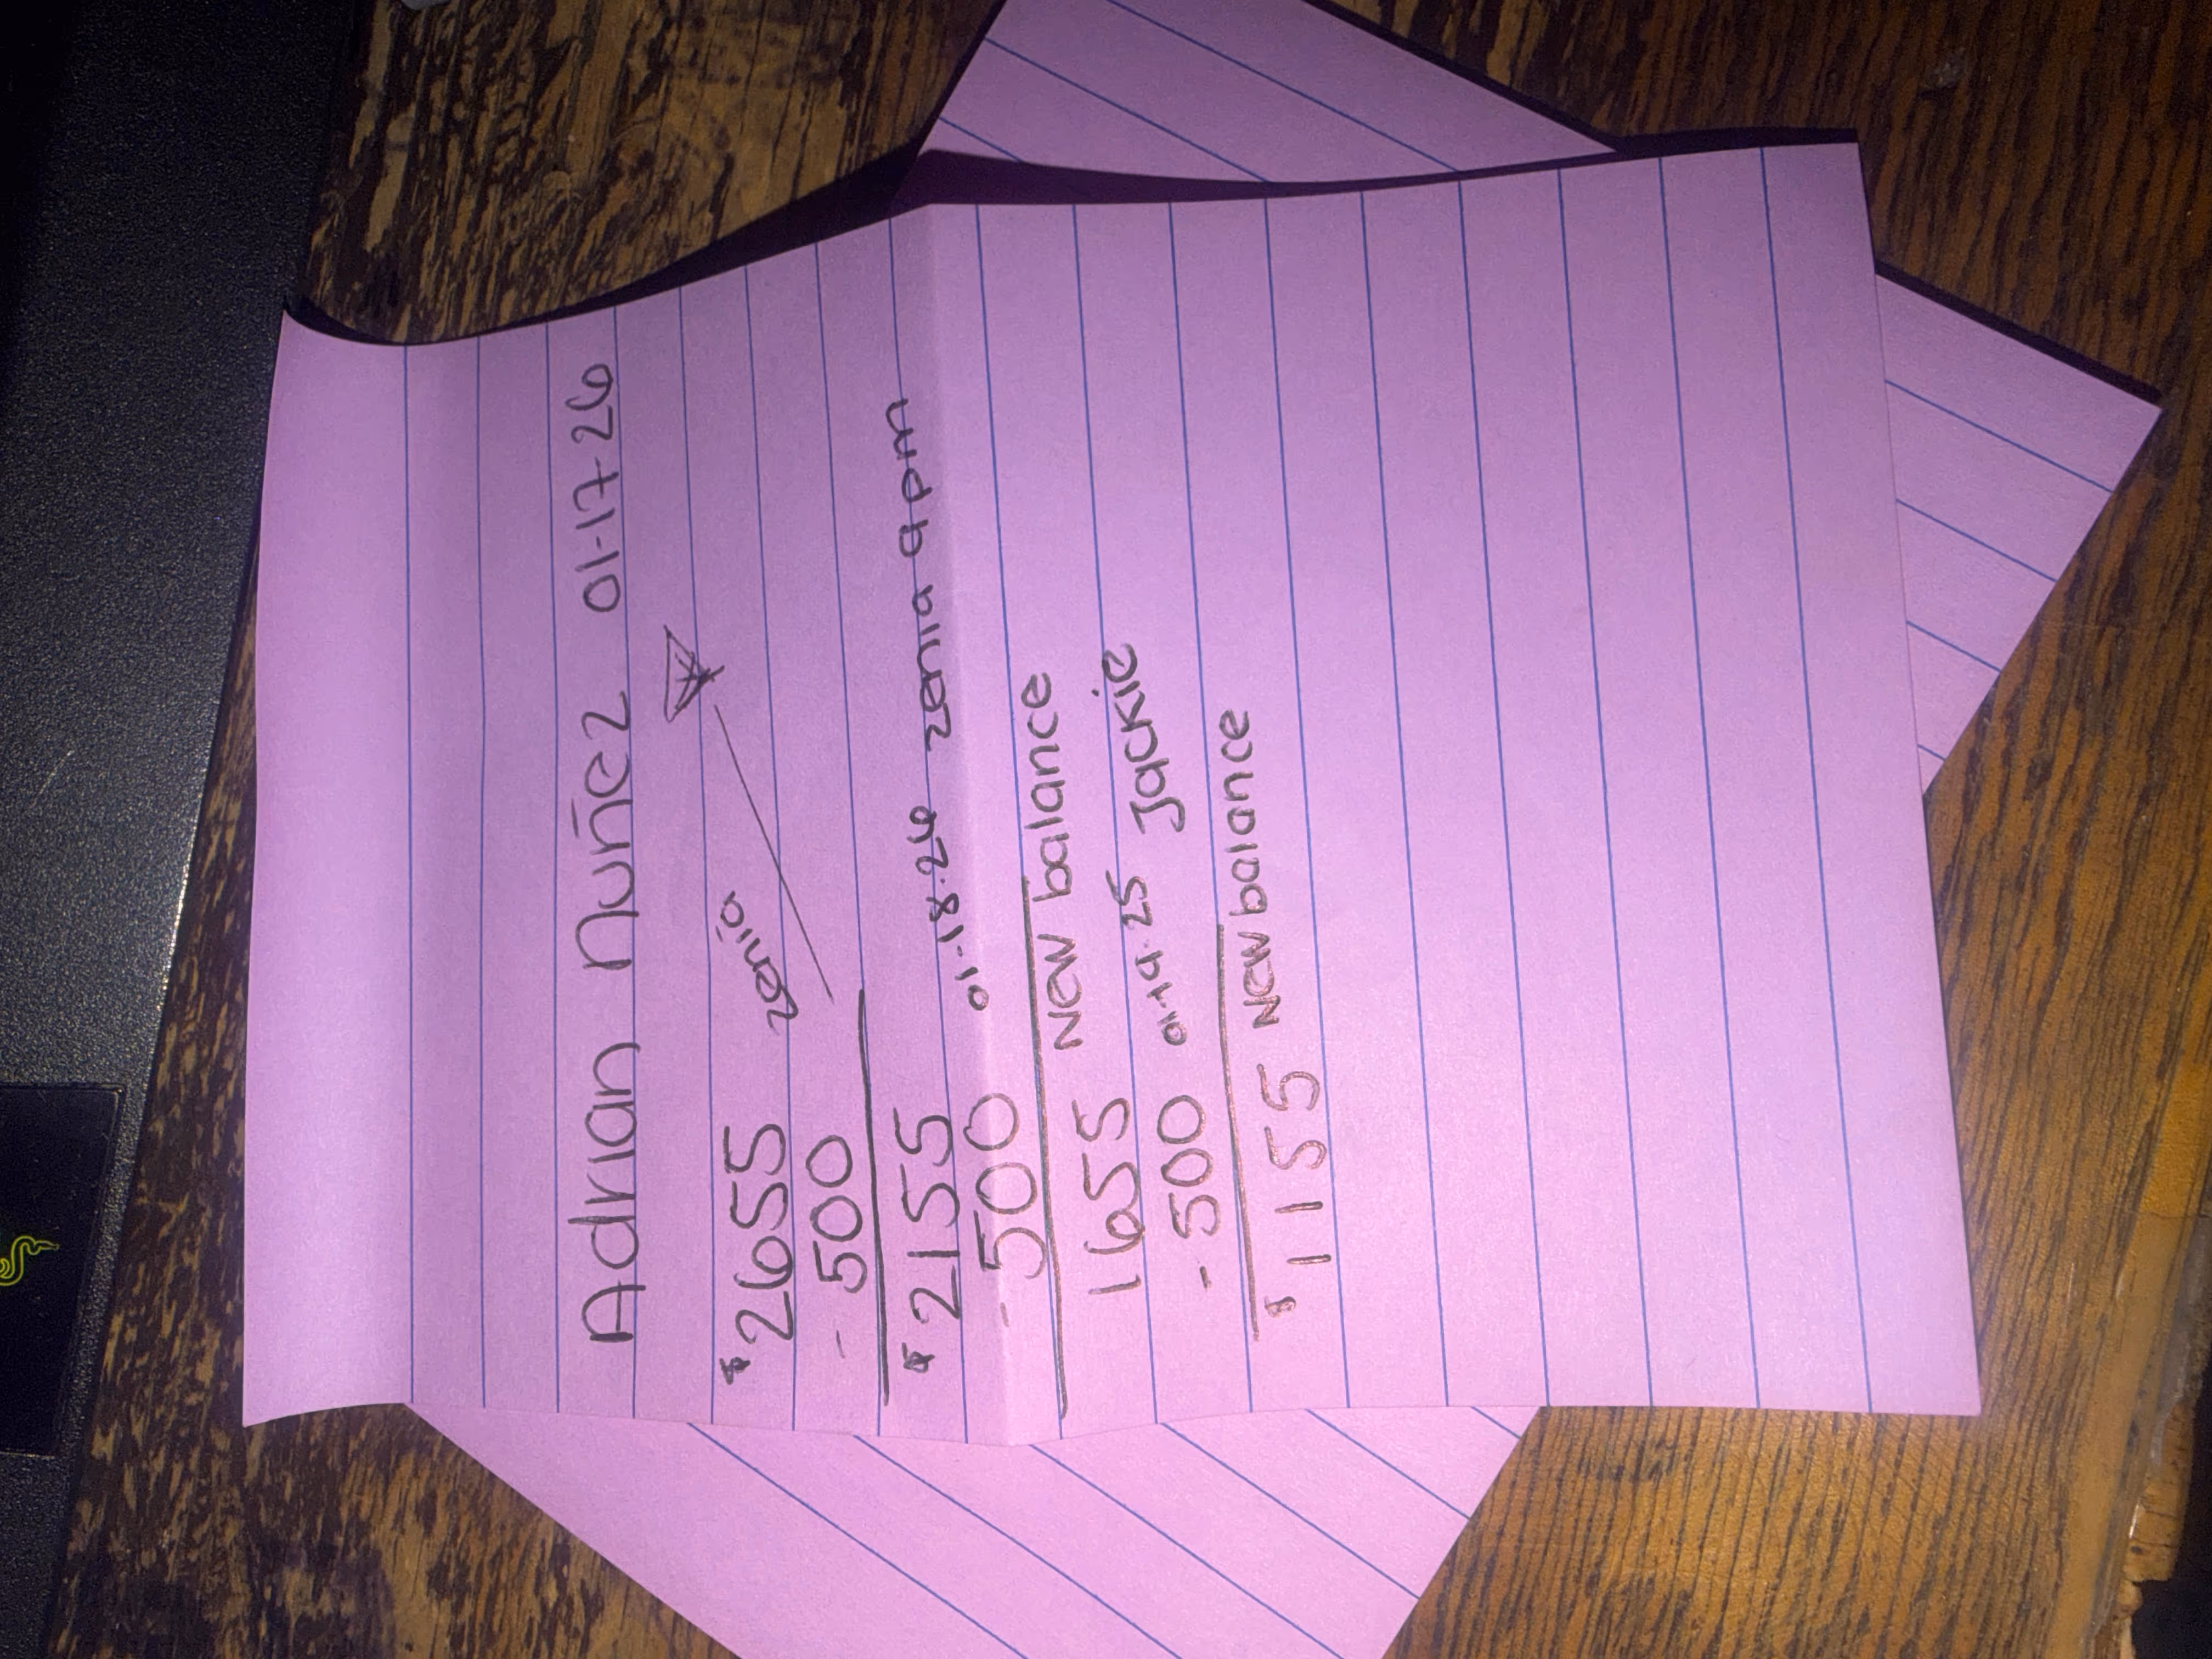 Adrian Nuñez 01-17-26
$2655 zenia
- 500
$2155 01-18-26 zenia 9pm
- 500
1655 New balance
- 500 01-19-25 Jackie
$1155 New balance